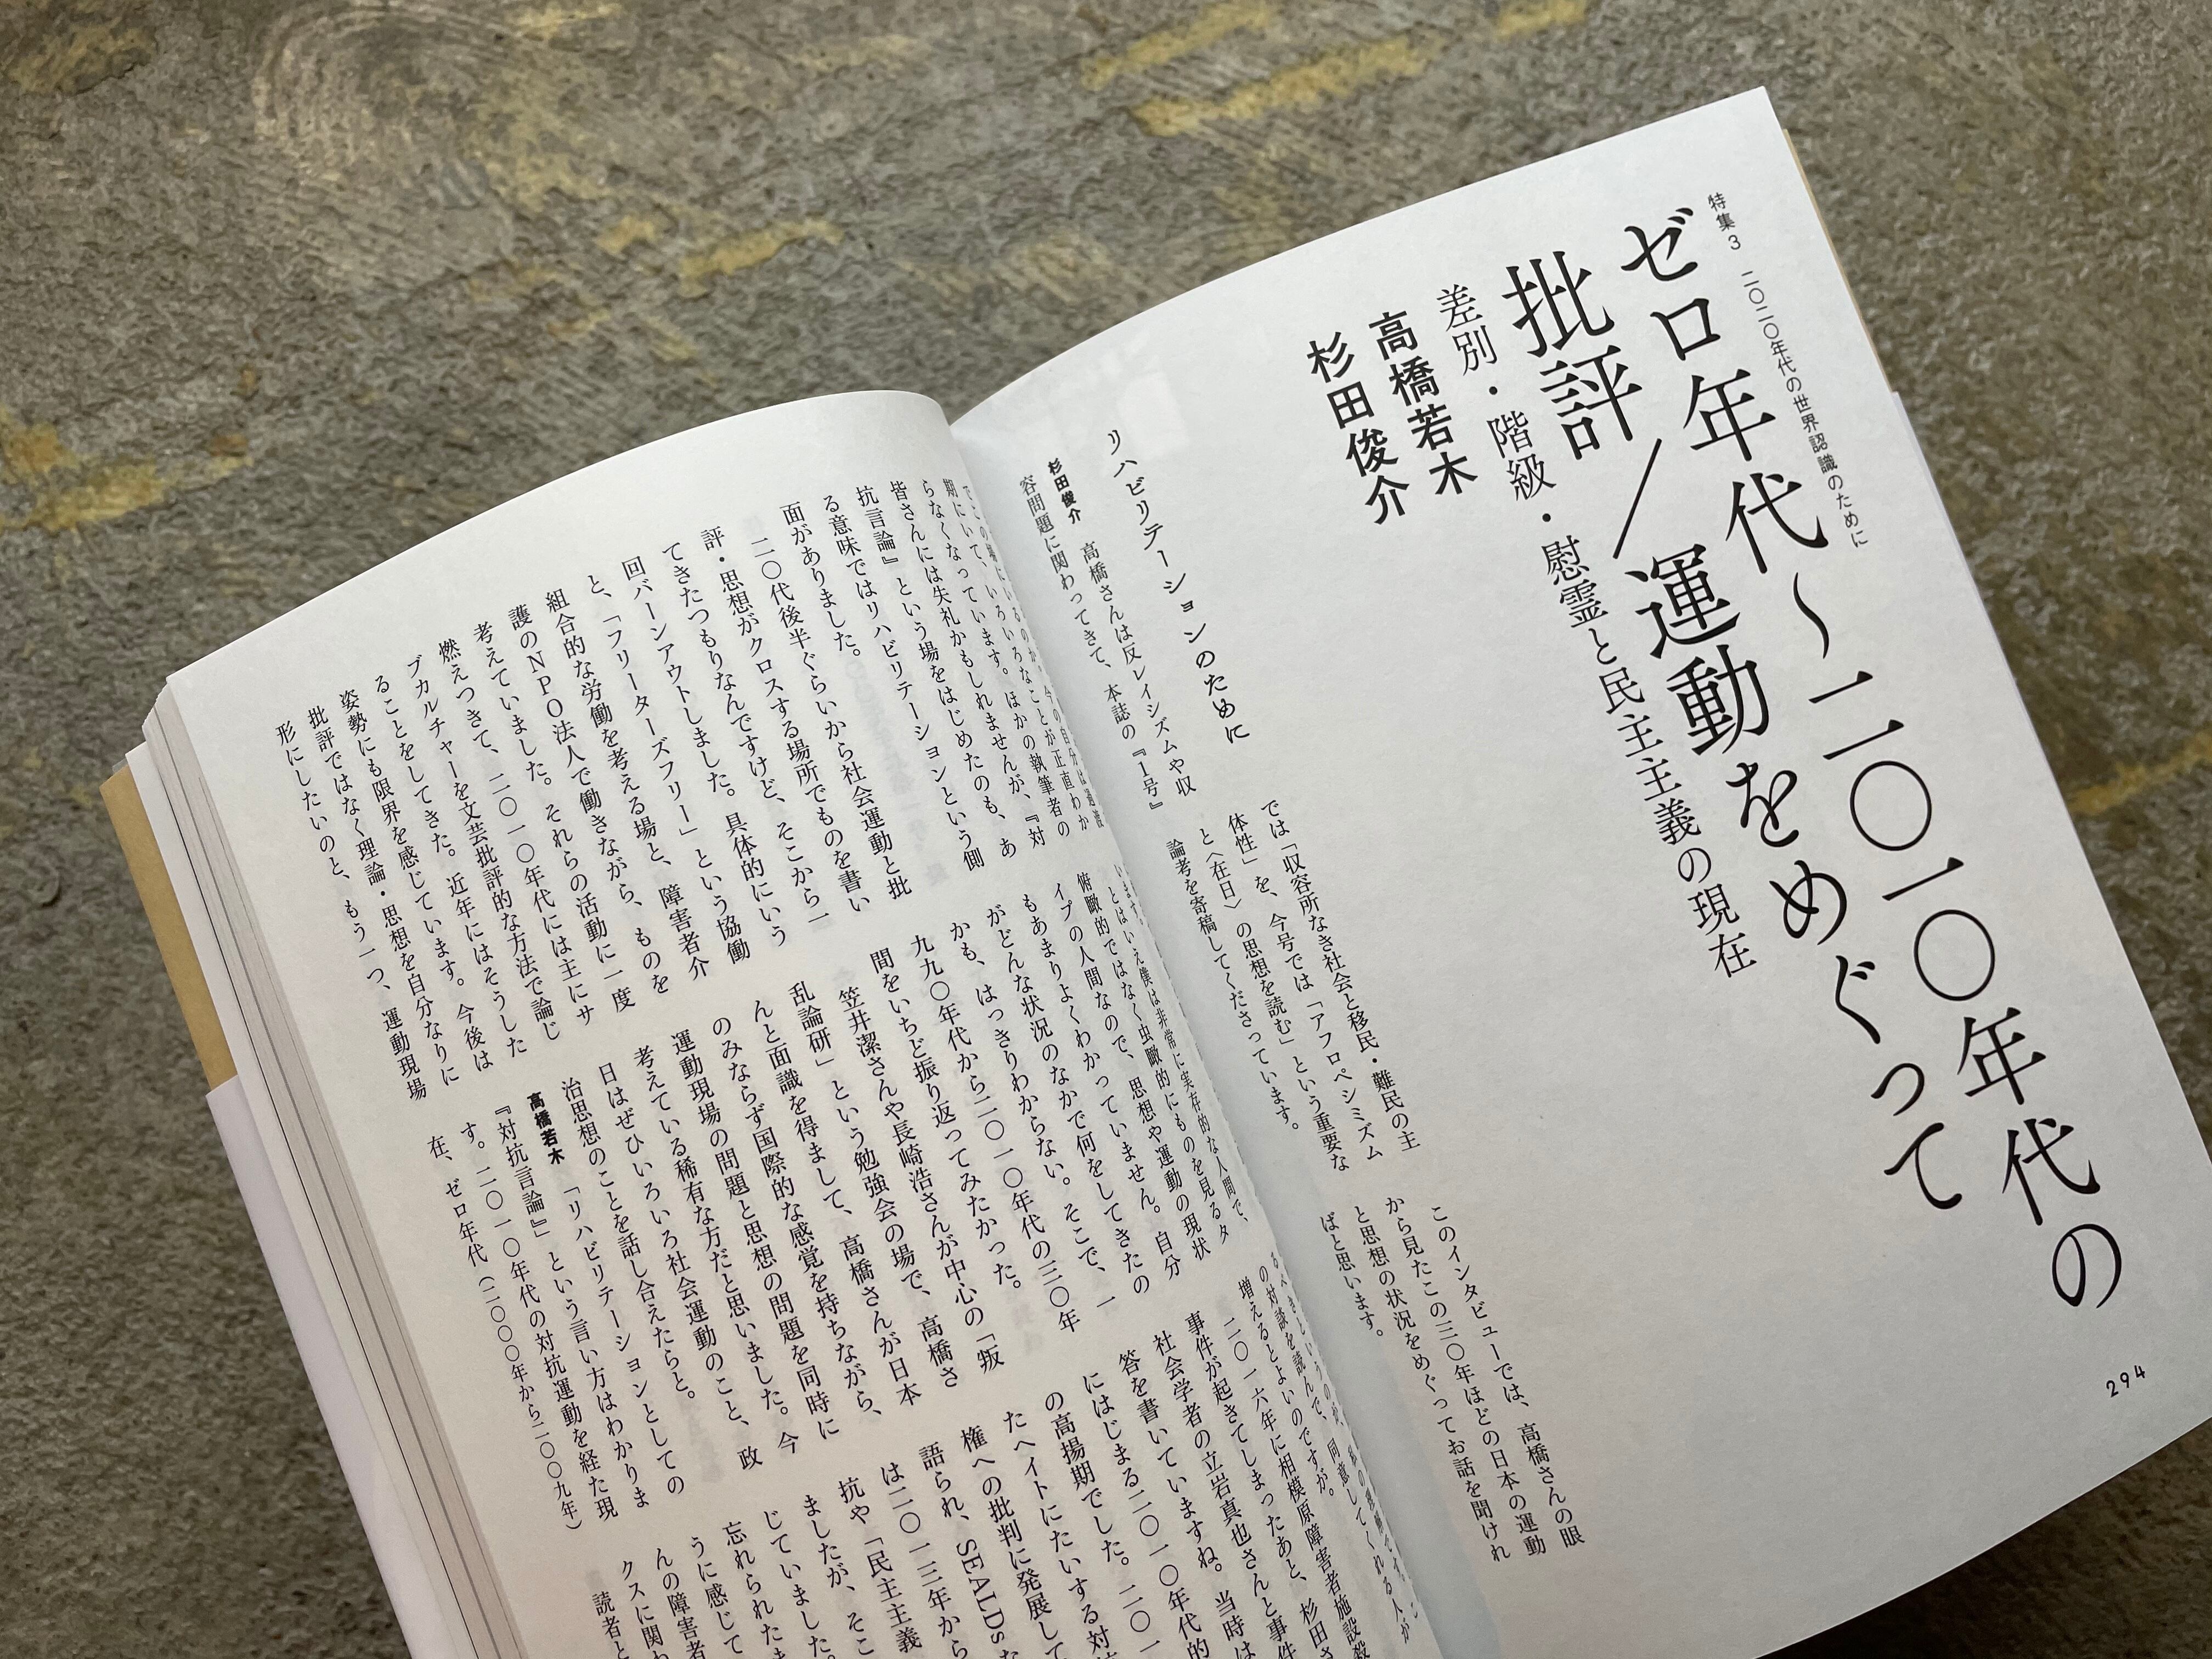 特集3 二〇二〇年代の世界認識のために
ゼロ年代〜二〇一〇年代の
批評／運動をめぐって
差別・階級・慰霊と民主主義の現在
高橋若木
杉田俊介
リハビリテーションのために
杉田俊介 高橋さんは反レイシズムや収
容問題に関わってきて、本誌の『1号』
では「収容所なき社会と移民・難民の主
体性」を、今号では「アフロペシミズム
と〈在日〉の思想を読む」という重要な
論考を寄稿してくださっています。
このインタビューでは、高橋さんの眼
から見たこの三〇年ほどの日本の運動
と思想の状況をめぐってお話を聞けれ
ばと思います。
294
期にいて、いろいろなことが正直わか
らなくなっています。ほかの執筆者の
皆さんには失礼かもしれませんが、『対
抗言論』という場をはじめたのも、あ
る意味ではリハビリテーションという側
面がありました。
二〇代後半ぐらいから社会運動と批
評・思想がクロスする場所でものを書い
てきたつもりなんですけど、そこから一
回バーンアウトしました。具体的にいう
と、「フリーターズフリー」という協働
組合的な労働を考える場と、障害者介
護のNPO法人で働きながら、ものを
考えていました。それらの活動に一度
燃えつきて、二〇一〇年代には主にサ
ブカルチャーを文芸批評的な方法で論じ
ることをしてきた。近年にはそうした
姿勢にも限界を感じています。今後は
批評ではなく理論・思想を自分なりに
形にしたいのと、もう一つ、運動現場
います。
とはいえ僕は非常に実存的な人間で、
俯瞰的ではなく虫瞰的にものを見るタ
イプの人間なので、思想や運動の現状
もあまりよくわかっていません。自分
がどんな状況のなかで何をしてきたの
かも、はっきりわからない。そこで、一
九九〇年代から二〇一〇年代の三〇年
間をいちど振り返ってみたかった。
笠井潔さんや長崎浩さんが中心の「叛
乱論研」という勉強会の場で、高橋さ
んと面識を得まして、高橋さんが日本
のみならず国際的な感覚を持ちながら、
運動現場の問題と思想の問題を同時に
考えている稀有な方だと思いました。今
日はぜひいろいろ社会運動のこと、政
治思想のことを話し合えたらと。
高橋若木 「リハビリテーションとしての
『対抗言論』」という言い方はわかりま
す。二〇一〇年代の対抗運動を経た現
在、ゼロ年代（二〇〇〇年から二〇〇九年）
の対談を読んで、同意してくれる人が
増えるとよいのですが。
二〇一六年に相模原障害者施設殺
事件が起きてしまったあと、杉田さ
社会学者の立岩真也さんと事件
答を書いていますね。当時は
にはじまる二〇一〇年代的
の高揚期でした。二〇一
たヘイトにたいする対抗
権への批判に発展して
語られ、SEALDsな
は二〇一三年から
抗や「民主主義
ましたが、そこ
じていました。
忘れられたま
うに感じて
んの障害者
クスに関わ
読者と